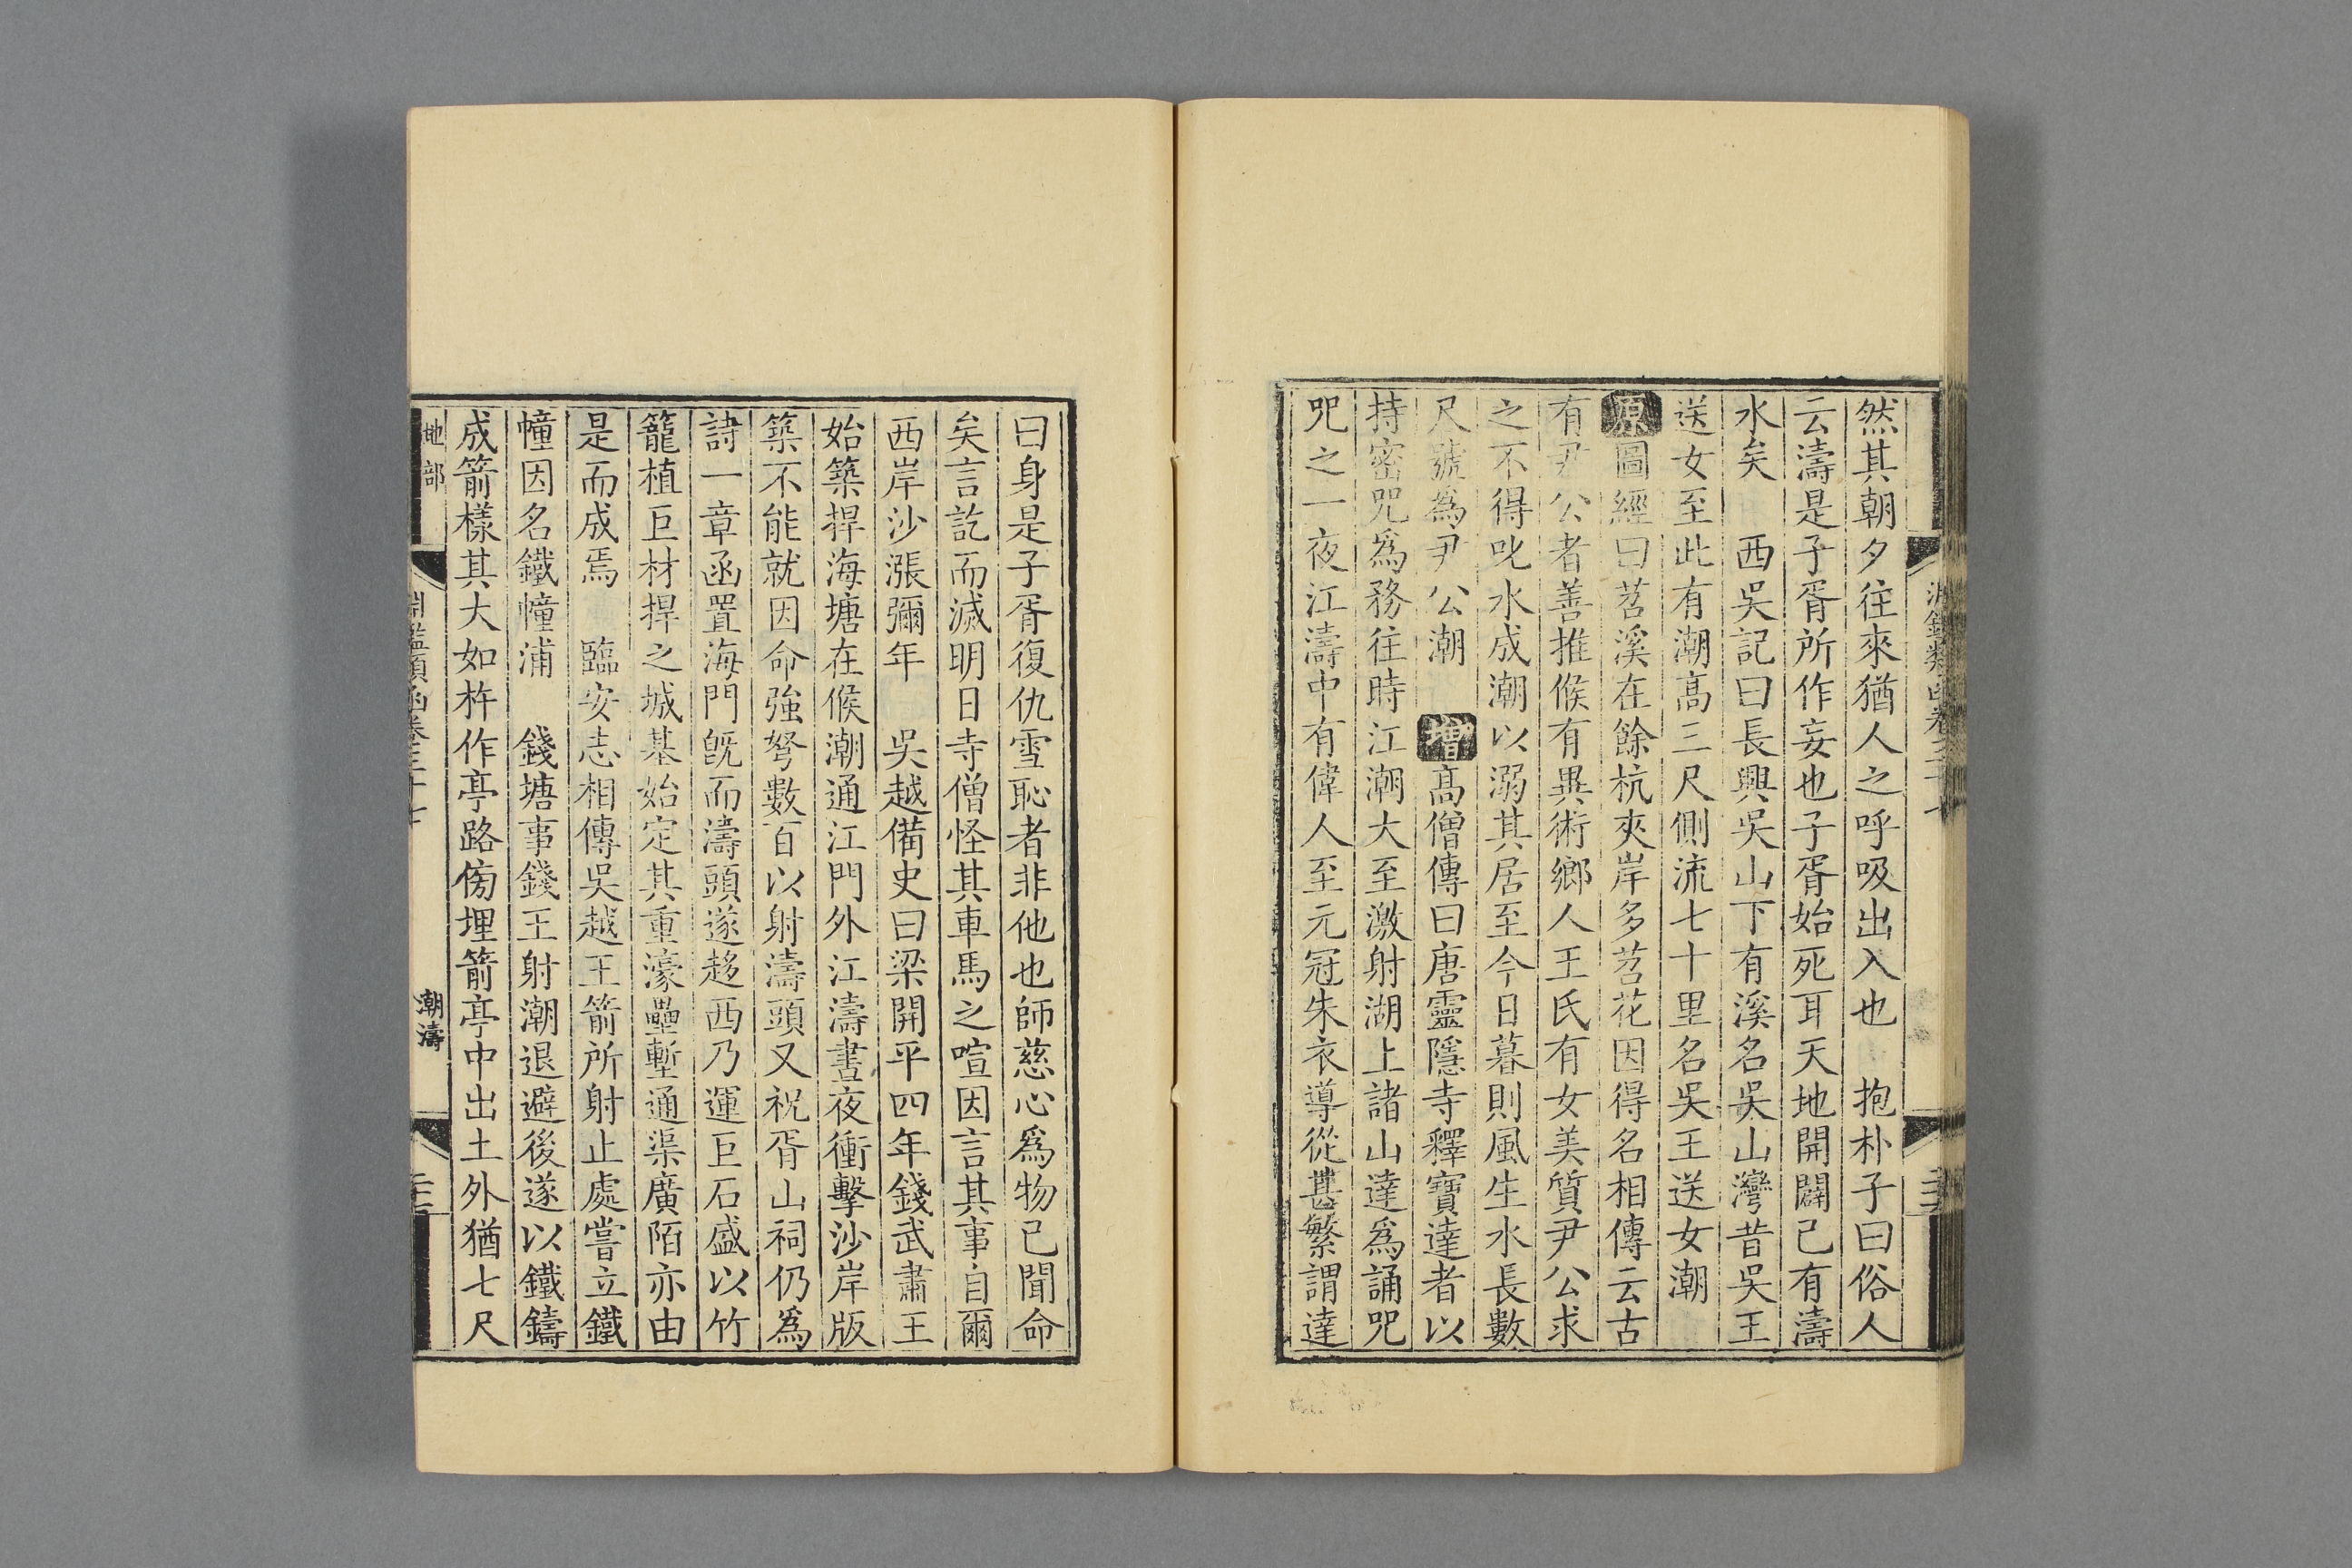 然其朝夕往來猶人之呼吸出入也　抱朴子曰俗人
云濤是子胥所作妄也子胥始死耳天地開闢已有濤
水矣　西吳記曰長興吳山下有溪名吳山灣昔吳王
送女至此有潮高三尺側流七十里名吳王送女潮
原圖經曰苕溪在餘杭夾岸多苕花因得名相傳云古
有尹公者善推候有異術鄉人王氏有女美質尹公求
之不得叱水成潮以溺其居至今日暮則風生水長數
尺號為尹公潮　增高僧傳曰唐靈隱寺釋寶達者以
持密咒為務往時江潮大至激射湖上諸山達為誦咒
咒之一夜江濤中有偉人至元冠朱衣導從甚繁謂達
曰身是子胥復仇雪恥者非他也師慈心為物已聞命
矣言訖而滅明日寺僧怪其車馬之喧因言其事自爾
西岸沙漲彌年　吳越備史曰梁開平四年錢武肅王
始築捍海塘在候潮通江門外江濤晝夜衝擊沙岸版
築不能就因命強弩數百以射濤頭又祝胥山祠仍為
詩一章函置海門旣而濤頭遂趍西乃運巨石盛以竹
籠植巨材捍之城基始定其重濠壘塹通渠廣陌亦由
是而成焉　臨安志相傳吳越王箭所射止處嘗立鐵
幢因名鐵幢浦　錢塘事錢王射潮退避後遂以鐵鑄
成箭樣其大如杵作亭路傍埋箭亭中出土外猶七尺
地部
潮濤